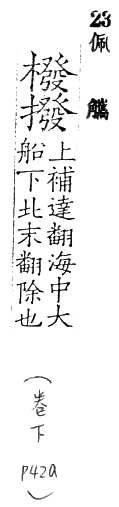 23
佩觿
橃撥
上補達翻海中大
船下北末翻除也
（卷下 P42a）